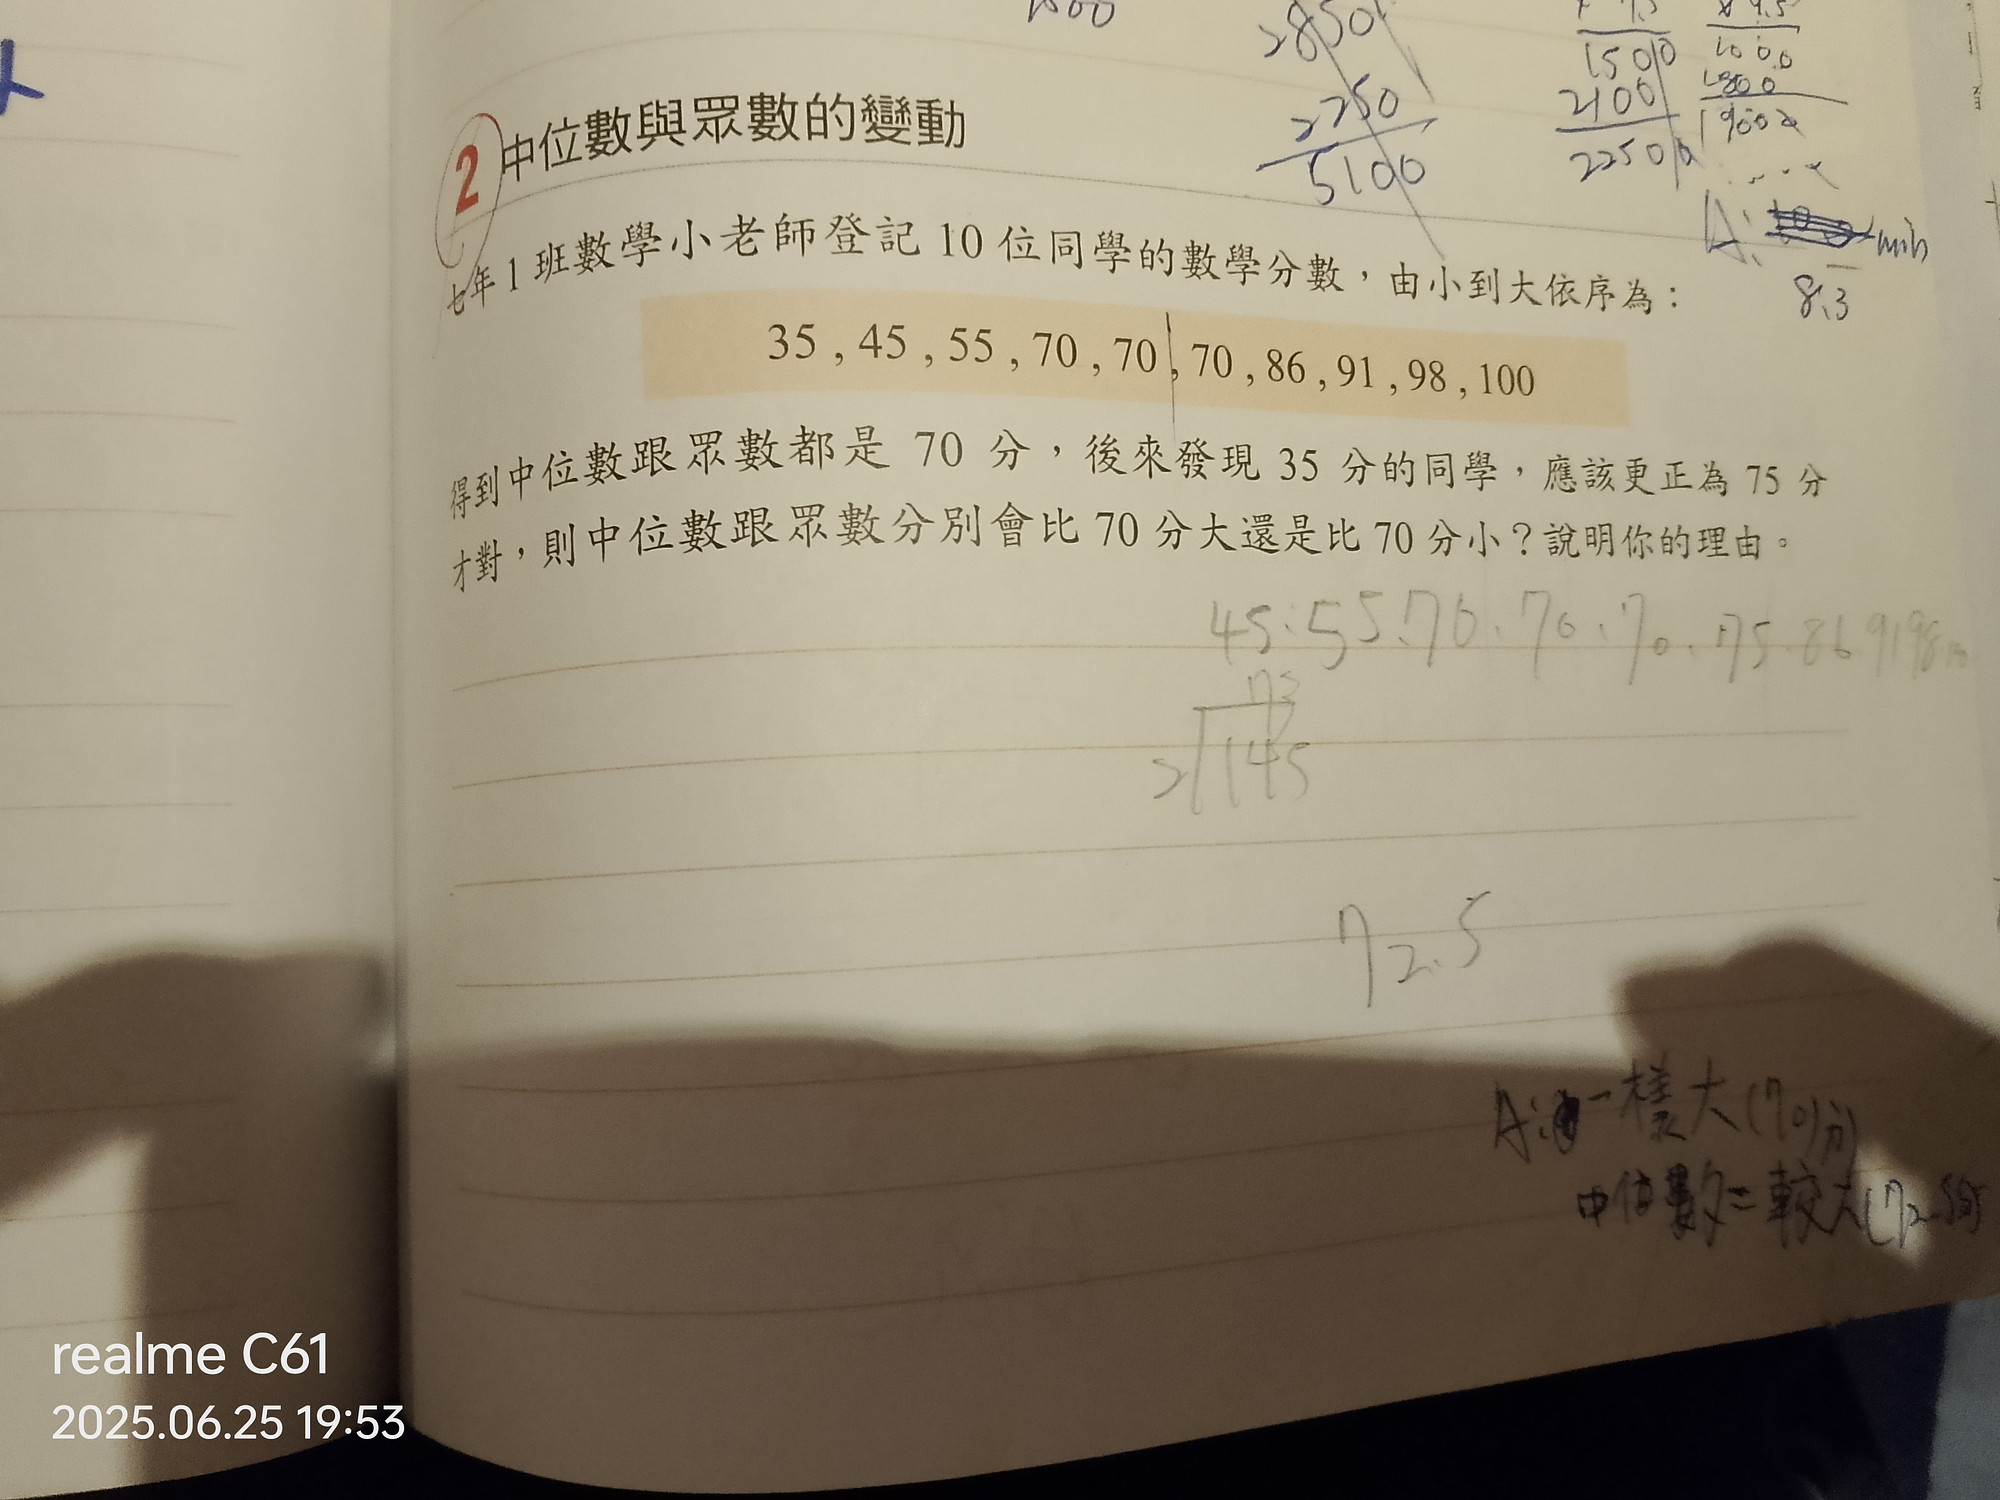 2850
2250
5100
1500
2100
22500
8.3
2 中位數與眾數的變動
七年1班數學小老師登記 10 位同學的數學分數，由小到大依序為：
35 , 45 , 55 , 70 , 70 , 70 , 86 , 91 , 98 , 100
得到中位數跟眾數都是 70 分，後來發現 35 分的同學，應該更正為 75 分
才對，則中位數跟眾數分別會比 70 分大還是比 70 分小？說明你的理由。
45.55.70.70.70.75.86 91 98
2 145
72.5
A: 一樣大(70分)
中位數=較大(72.5分)
realme C61
2025.06.25 19:53